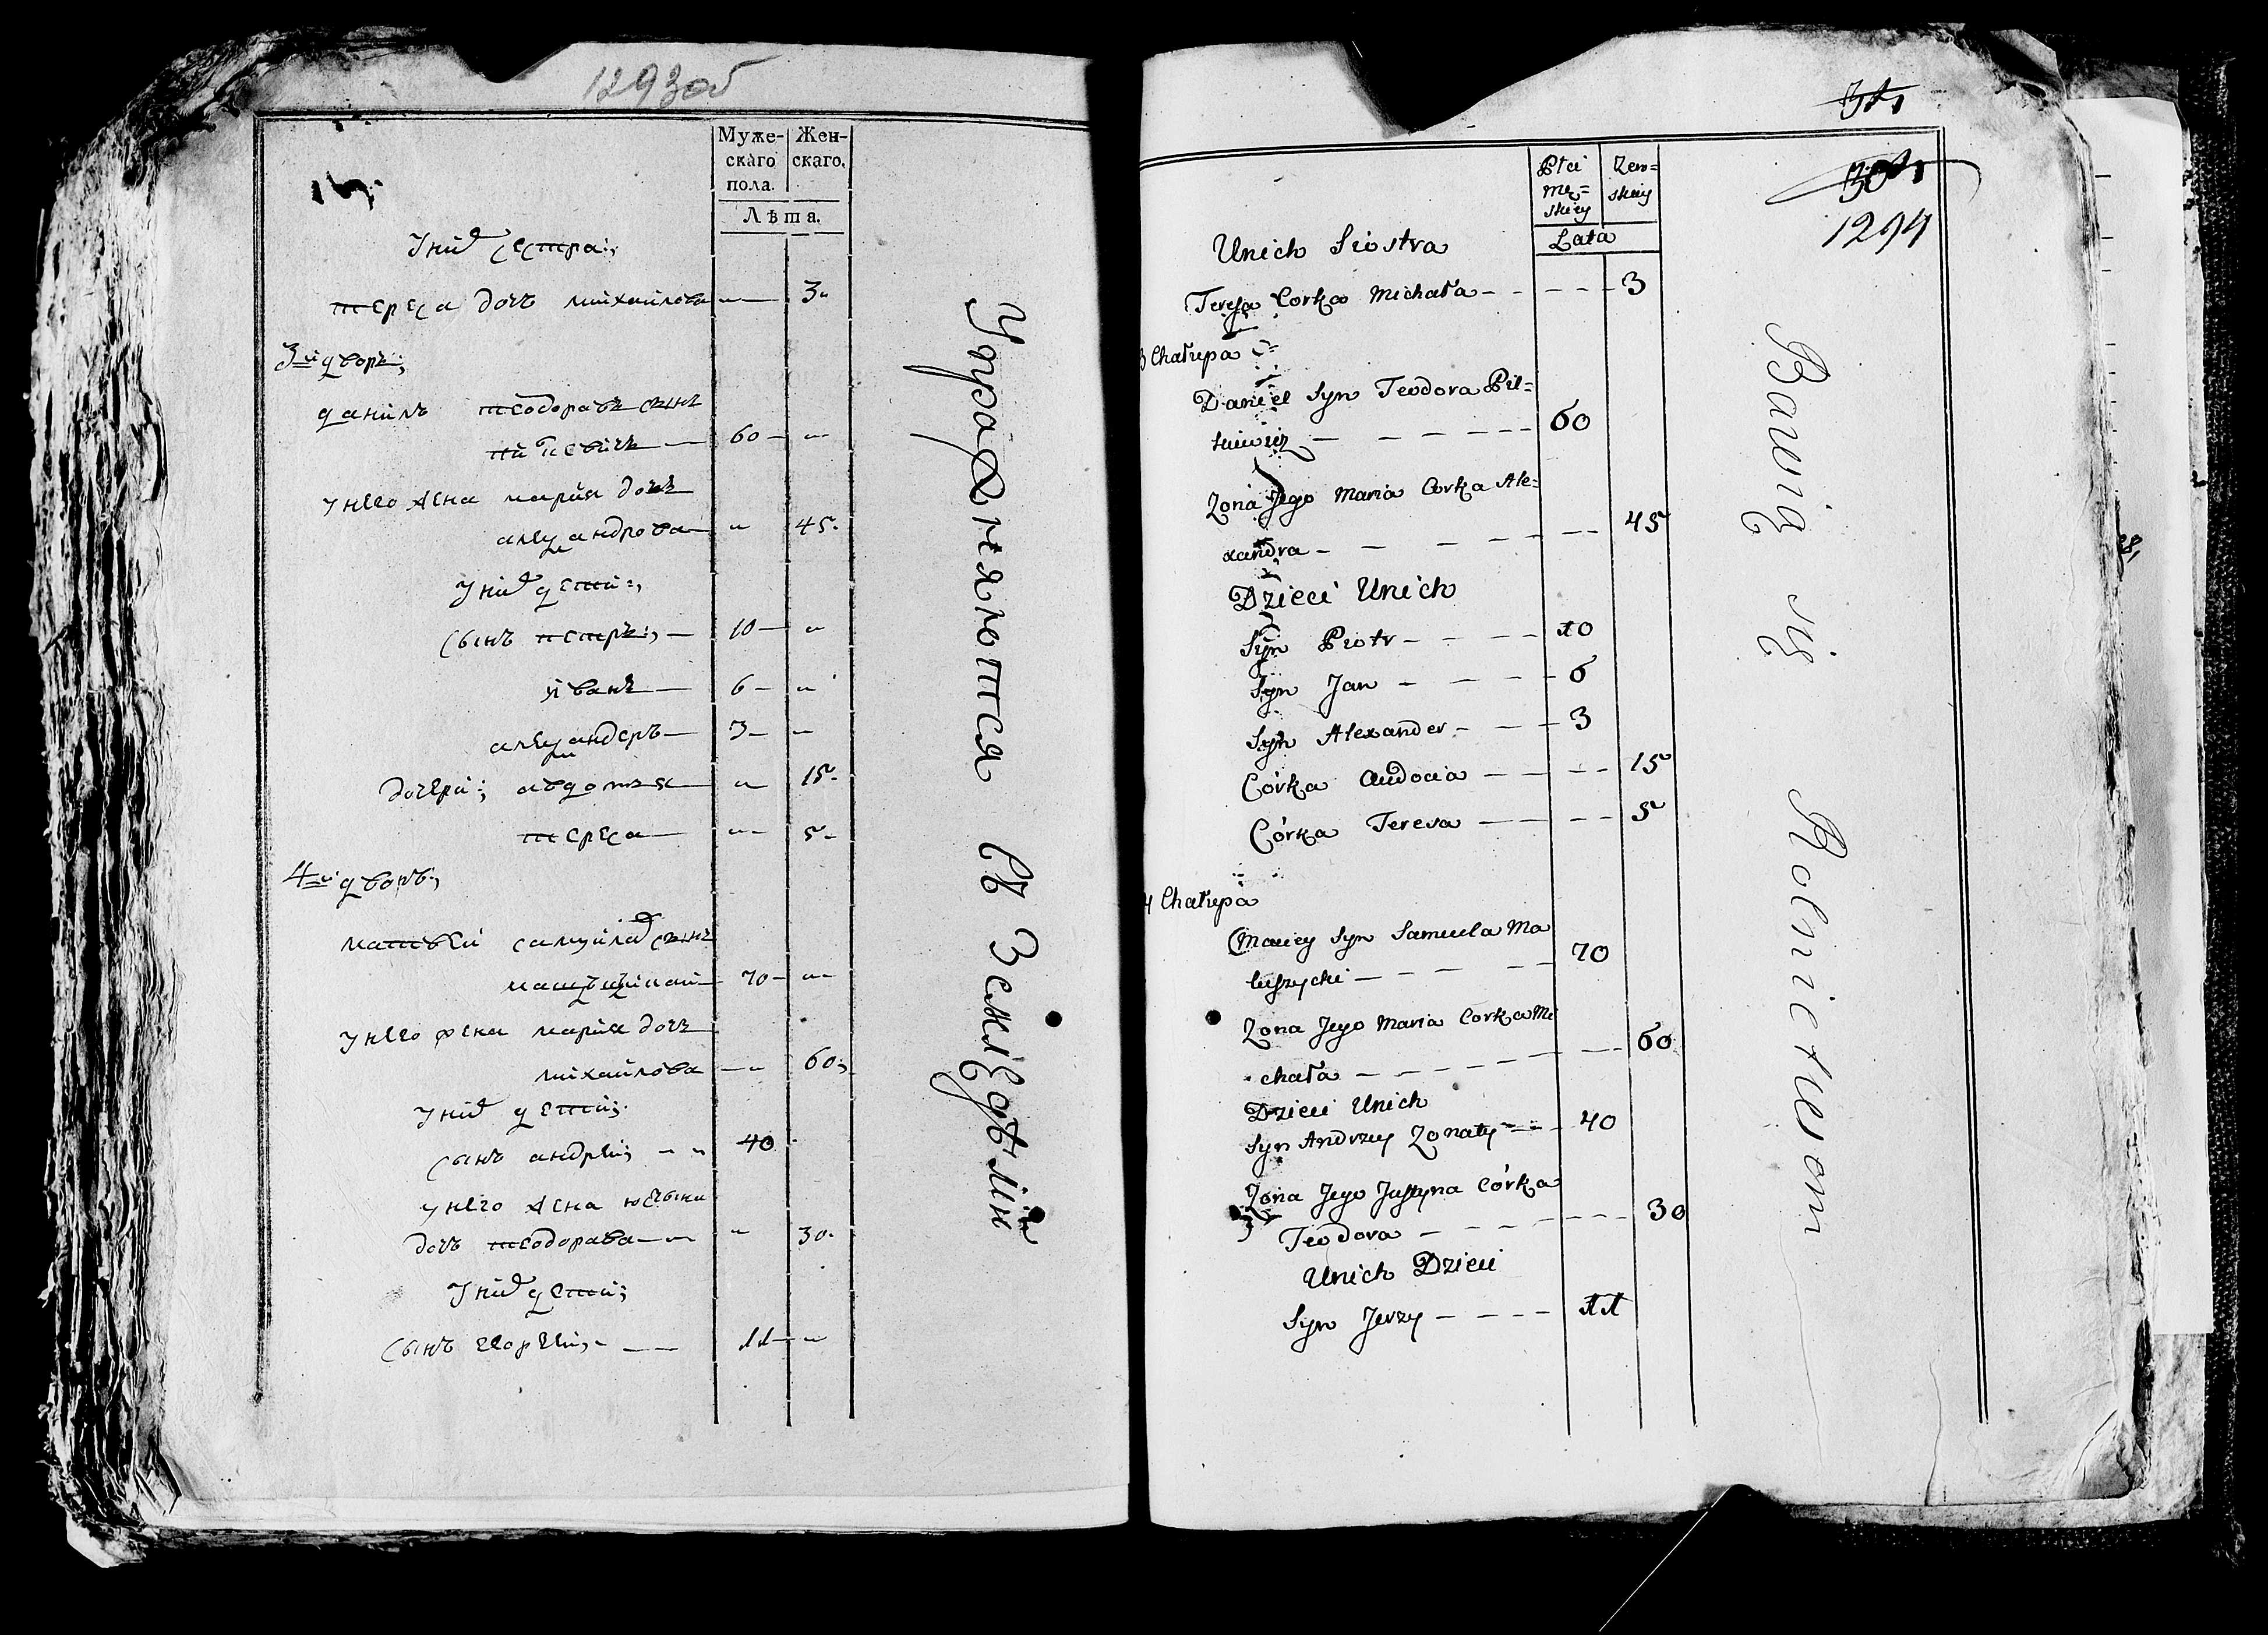 1293об
Муже- Жен-
скаго скаго.
пола.
Лѣта.
У них сестра:,
тереса дочъ михаилова — 3
3й дворъ;
данилъ теодоравъ сынъ
60
У него жена мария дочъ
александрова — 45
У них дети:,
Сынъ петръ:, — 10
иванъ — 6
александеръ — 3
дочери:; авдотья — 15
тереса — 5
4й дворъ;
матвей самуилав сынъ
70
У него жена мария дочъ
михаилова — 60
У них дети;
сынъ андрей; 40
У него жена
дочъ теодорава — 30
У них дети;
Сынъ егорей; — 11
Упражняются въ Земледѣлии
1294
Płci Zen=
mę= skiey
skiey
Lata
Unich Siostra
Teresa Corka Michała - - - - - 3
3 Chałupa
Daniel Syn Teodora Pil=
- - - - - 60
Zona Jego Maria Corka Ale=
xandra - - - - - 45
Dzieci Unich
Syn Piotr - - - - 10
Syn Jan - - - - 6
Syn Alexander - - - 3
Córka Audocia - - - - 15
Córka Teresa - - - - 5
4 Chałupa
Maciey Syn Samuela Ma
luszycki - - - - - 70
Zona Jego Maria Corka Mi
chała - - - - - - 60
Dzieci Unich
Syn Andrzey Zonaty - - - 40
Zona Jego Justyna Córka
Teodora - - - - - - 30
Unich Dzieci
Syn Jerzy - - - - 11
Bawią się Rolnictwem